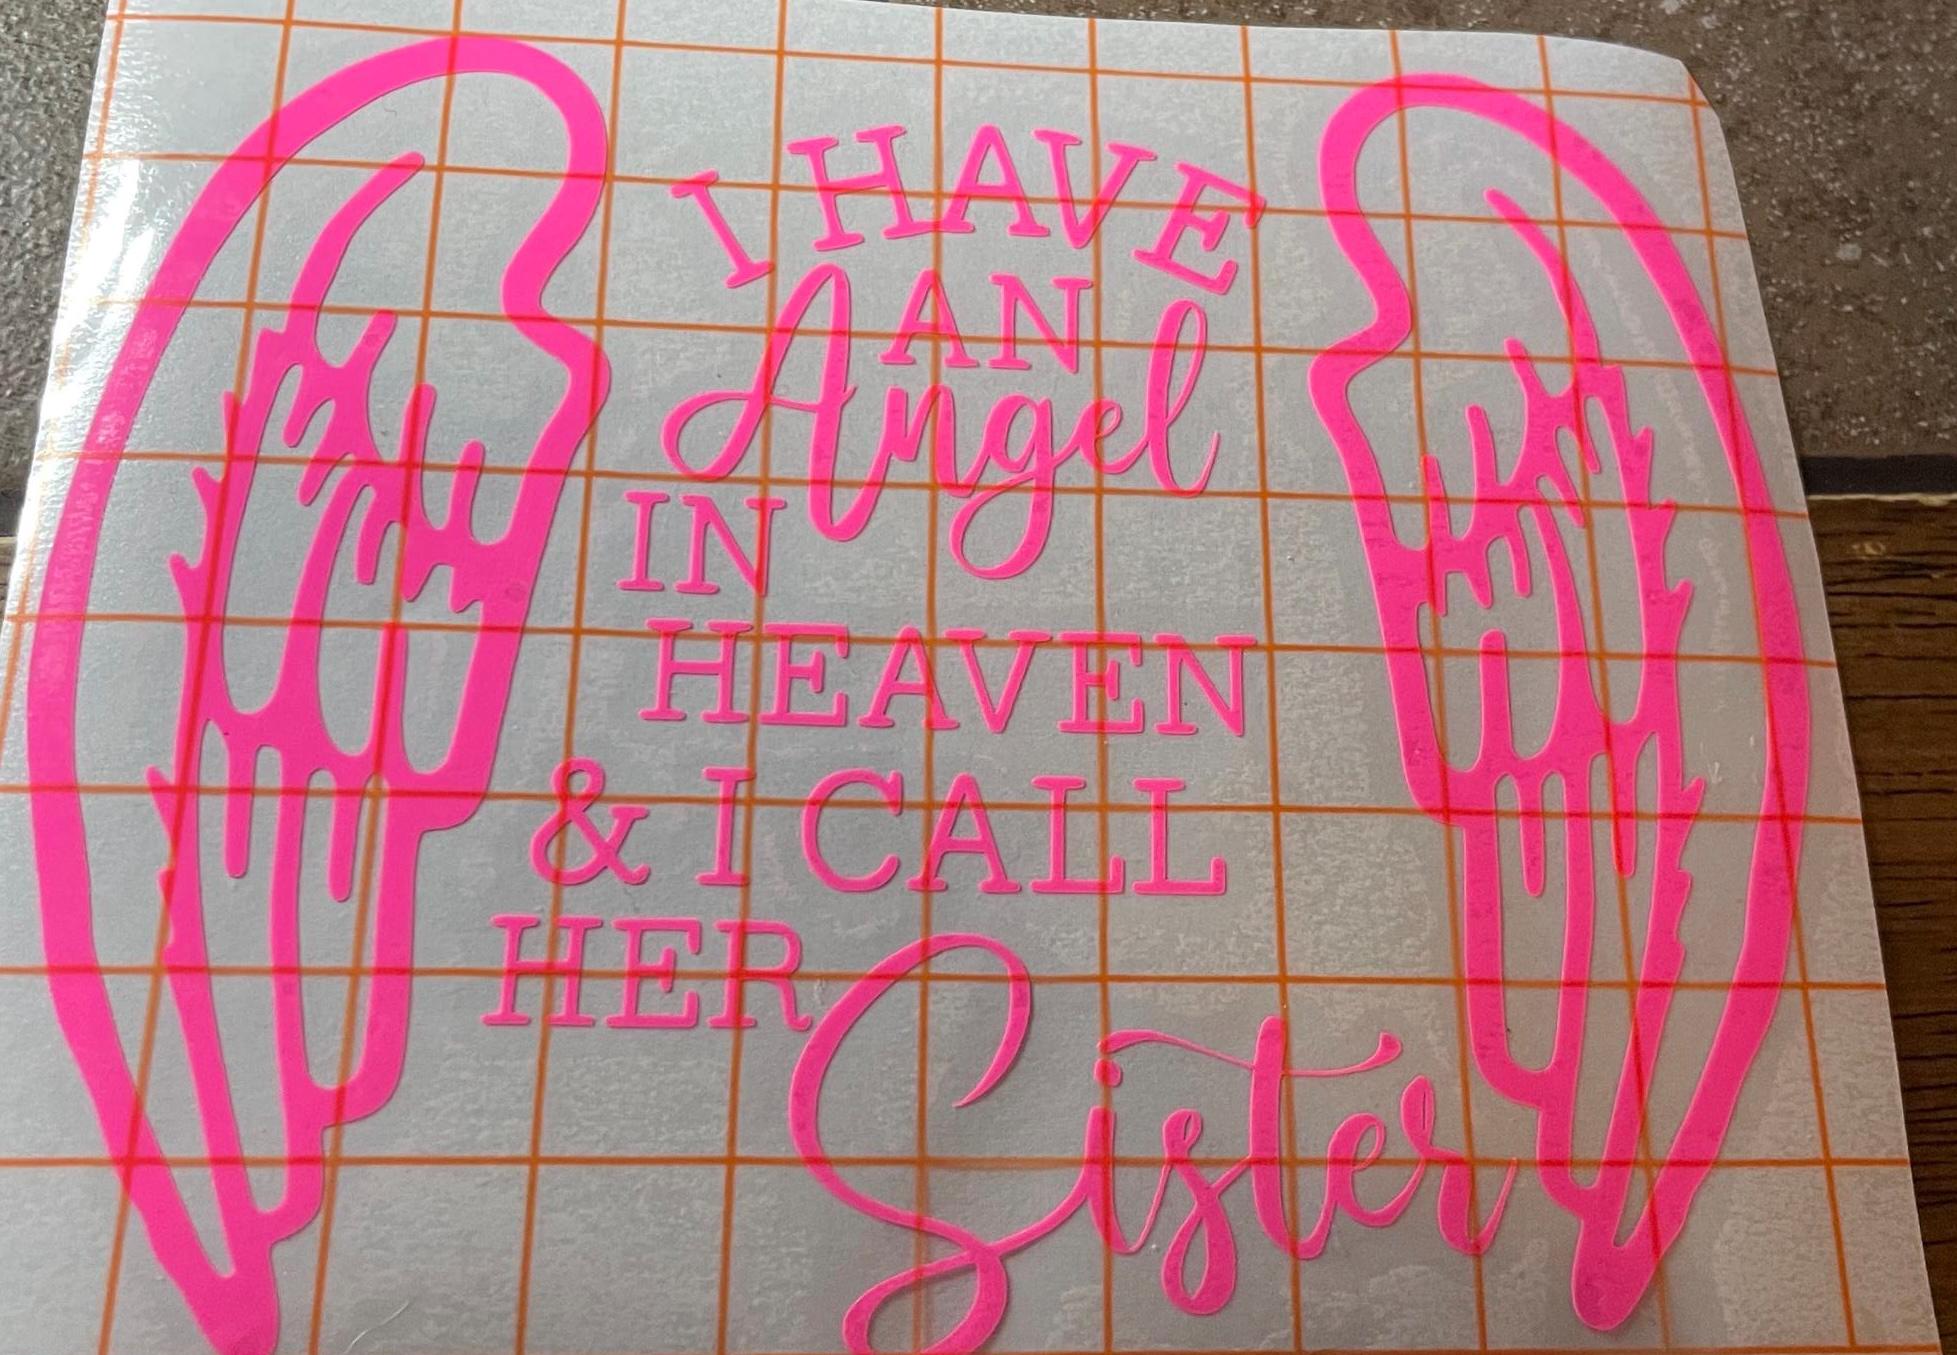 I HAVE
AN
Angel
IN
HEAVEN
& I CALL
HER
Sister